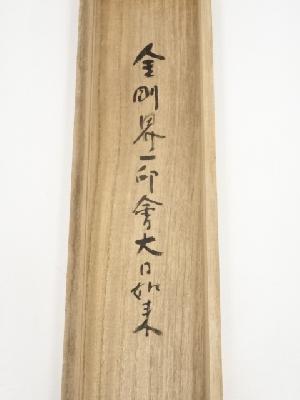 金剛界一印會大日如来